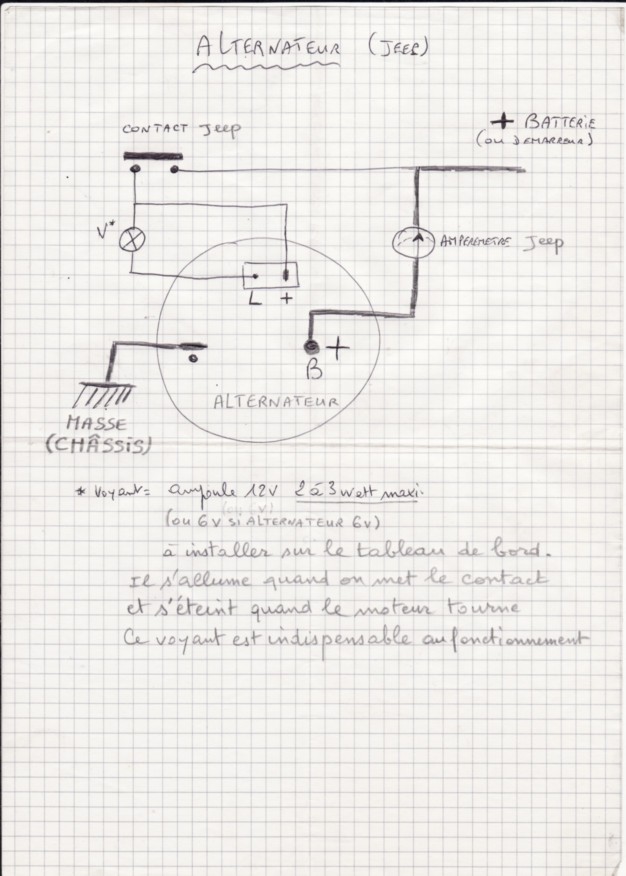 ALTERNATEUR (JEEP)
CONTACT Jeep
+ BATTERIE
(ou DEMARREUR)
V*
AMPEREMETRE Jeep
L +
B +
ALTERNATEUR
MASSE
(CHÂSSIS)
* Voyant = ampoule 12V 2 à 3 watt maxi.
(ou 6V)
(ou 6V SI ALTERNATEUR 6V)
à installer sur le tableau de bord.
Il s'allume quand on met le contact
et s'éteint quand le moteur tourne
Ce voyant est indispensable au fonctionnement